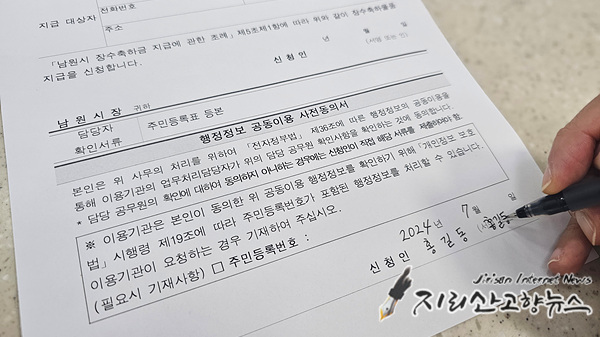 지급 대상자
전화번호
주소
「남원시 장수축하금 지급에 관한 조례」 제5조제1항에 따라 위와 같이 장수축하물품
지급을 신청합니다.
년 월 일
신청인
남원시장 귀하
담당자
확인서류
주민등록표 등본
행정정보 공동이용 사전동의서
본인은 위 사무의 처리를 위하여 「전자정부법」 제36조에 따른 행정정보의 공동이용을
통해 이용기관의 업무처리담당자가 위의 담당 공무원 확인사항을 확인하는 것에 동의합니다.
* 담당 공무원의 확인에 대하여 동의하지 아니하는 경우에는 신청인이 직접 해당 서류를 제출하여야 함.
※ 이용기관은 본인이 동의한 위 공동이용 행정정보를 확인하기 위해 「개인정보 보호
법」 시행령 제19조에 따라 주민등록번호가 포함된 행정정보를 처리할 수 있습니다.
이용기관이 요청하는 경우 기재하여 주십시오.
(필요시 기재사항) □ 주민등록번호 :
2024년 7월 일
신청인 홍길동 (서 홍길동
Jirisan Internet News
지리산고향뉴스